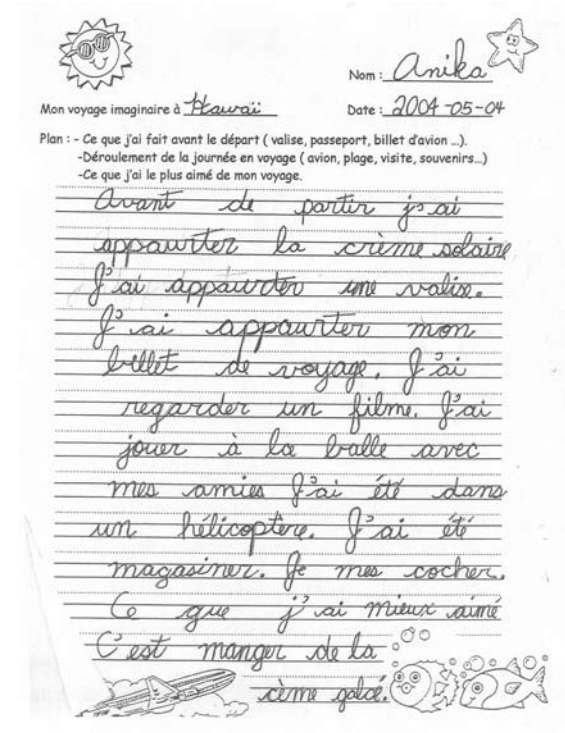 Nom : Anika
Mon voyage imaginaire à Hawaï
Date : 2004-05-04
Plan : - Ce que j'ai fait avant le départ ( valise, passeport, billet d'avion ...).
-Déroulement de la journée en voyage ( avion, plage, visite, souvenirs...)
-Ce que j'ai le plus aimé de mon voyage.
Avant de partir j'ai
appaurter la crème solaire
J'ai appaurter une valise.
J'ai appaurter mon
billet de voyage. J'ai
regarder un filme. J'ai
jouer à la balle avec
mes amies J'ai été dans
un hélicoptère. J'ai été
magasiner. Je mes cocher.
Ce que j'ai mieux aimé
C'est manger de la
cème galcé.